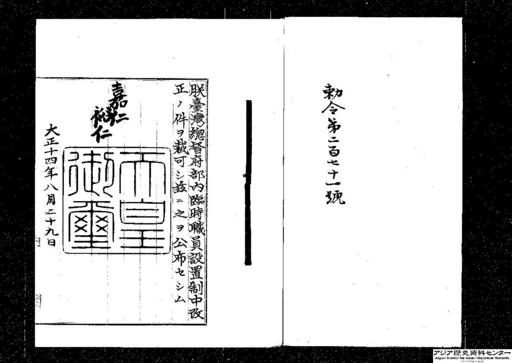 勅令第二百七十一號
朕臺灣總督府部內臨時職員設置制中改
正ノ件ヲ裁可シ茲ニ之ヲ公布セシム
嘉仁
裕仁
天皇
御璽
大正十四年八月二十九日
内
アジア歴史資料センター
Japan Center for Asian Historical Records